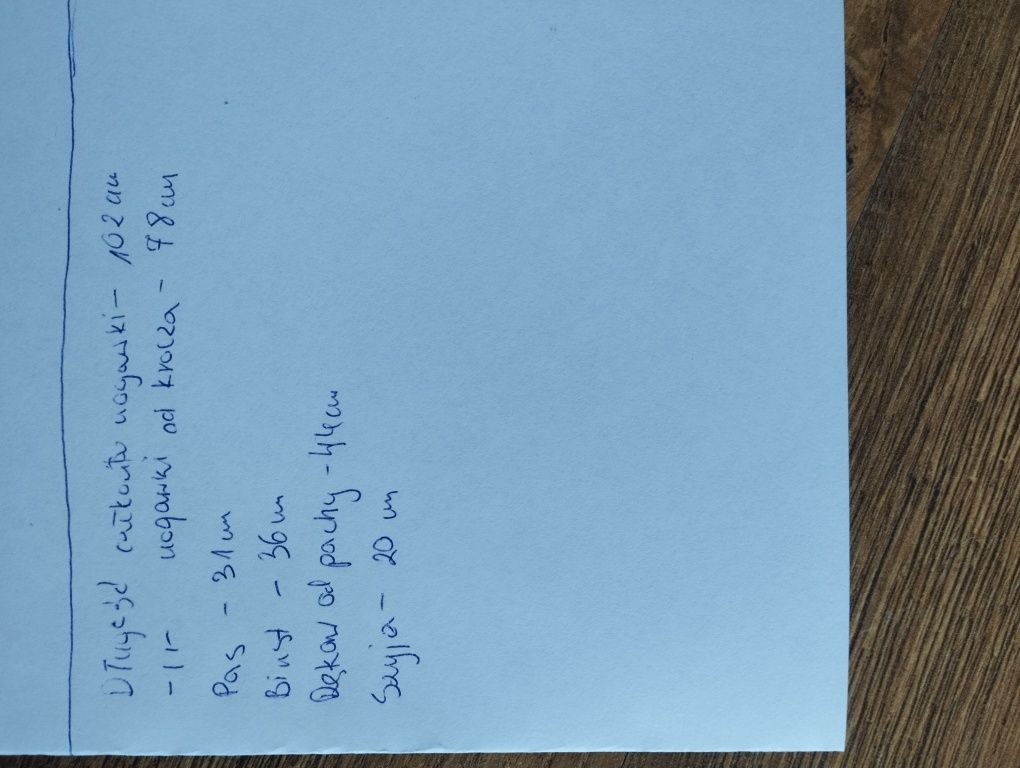 Długość całkowita nogawki - 102 cm
-||- nogawki od krocza - 78 cm
Pas - 31 cm
Biust - 36 cm
Rękaw od pachy - 44 cm
Szyja - 20 cm